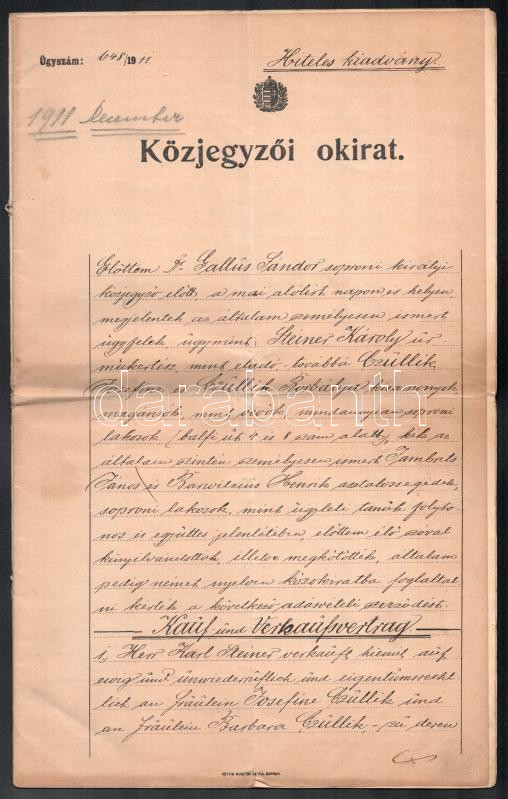 Ügyszám: 648/1911
Hiteles kiadvány.
1911 December
Közjegyzői okirat.
Előttem Dr. Gallus Sándor soproni királyi
közjegyző előtt, a mai alólirt napon és helyen,
megjelentek az általam személyesen ismert
ügyfelek úgymint: Steiner Károly úr
műkertész, mint eladó, továbbá Czüllik
Jozefine és Czüllik Borbálya kisasszonyok,
magánzók, mint vevők, mindannyian soproni
lakosok /balfi út 4 és 8 szám alatt/, kik az
általam szintén személyesen ismert Jambrits
János és Henrik asztalossegédek,
soproni lakosok, mint ügyleti tanúk folyto-
nos és együttes jelenlétében, előttem élő szóval
kinyilvánitották, illetve megkötötték, általam
pedig német nyelven közokiratba foglaltat
ni kérték a következő adásvételi szerződést.
Kauf und Verkaufsvertrag
1, Herr Karl Steiner verkauft hiemit auf
ewig und unwiederruflich und eigentumsrecht
lich an Fräulein Josefine Czüllik und
an Fräulein Barbara Czüllik, zu deren
darabanth
RÖTTIG GUSZTÁV ÉS FIA, SOPRON.